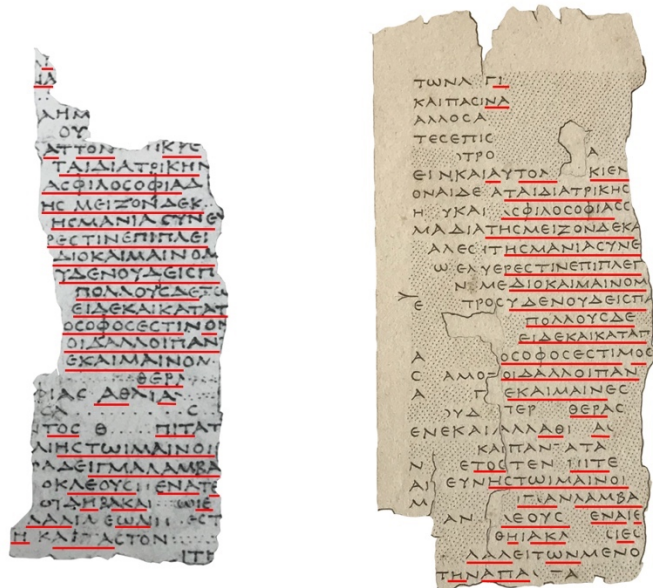 ΛΗΜ
ΟΥ
ΑΤΤΟΝ ΙΚΡΕ
ΤΑΙΔΙΑΤΡΙΚΗΝ
ΑϹΦΙΛΟϹΟΦΙΑΔ
ΗϹ ΜΕΙΖΟΝΔΕΚ
ΗϹΜΑΝΙΑϹΥΝΕ
ΡΕϹΤΙΝΕΠΙΠΛΕΙ
ΔΙΟΚΑΙΜΑΙΝΟΜ
ΥΔΕΝΟΥΔΕΙϹΠ
ΠΟΛΛΟΥϹΔΕΤ
ΕΙΔΕΚΑΙΚΑΤΑΤ
ΟϹΟΦΟϹΕϹΤΙΝΟΜ
ΟΙΔΑΛΛΟΙΠΑΝ
ΕΚΑΙΜΑΙΝΟΜ
ΘΕΡΑ
ΡΙΑϹ ΑΘΛΙΑ
ϹΑ Ϲ
ΤΟϹ Θ ΠΙΤΑΤ
ΑΙΗϹΤΩΙΜΑΙΝΟΙ
ΑΔΕΙΓΜΑΛΑΜΒΑ
ΟΚΛΕΟΥϹ ΕΝΑΤ
ΟΙΔΗΒΑΚΑ ΩΙΕ
ΛΑΛΙΛΕΩΛΙ ΕϹΤ
Η ΚΑΙ ΑϹΤΟΝ
ΙΤΕ
ΤΩΝΑ ΓΙ
ΚΑΙΠΑϹΙΝΑ
ΑΛΛΟϹΑ
ΤΕϹΕΠΙϹ
ΟΤΡΟ Α
ΕΙΝΚΑΙΑΥΤΟΛ ΚΙΕΝ
ΟΝΑΙΔΕΑΤΑΙΔΙΑΤΡΙΚΗϹ
Η ΥΚΑΙ ΑϹΦΙΛΟϹΟΦΙΑϹϹ
ΜΑΔΙΑΤΗϹΜΕΙΖΟΝΔΕΚ
ΑΛΕϹΙΤΗϹΜΑΝΙΑϹΥΝΕ
Ω ΕΛΥΕΡΕϹΤΙΝΕΠΙΠΛΕΓ
Ν ΜΕΔΙΟΚΑΙΜΑΙΝΟΜ
Ε ΤΡΟϹΥΔΕΝΟΥΔΕΙϹΠ
ΠΟΛΛΟΥϹΔΕ
ΕΙΔΕΚΑΙΚΑΤΑΠ
Α ΟϹΟΦΟϹΕϹΤΙΜΟϹ
Ϲ ΑΜΟ ΟΙΔΑΛΛΟΙΠΑΝ
Α ΕΚΑΙΜΑΙΝΕϹ
ΟΥΔ ΤΕΡ ΘΕΡΑϹ
ΕΝΕΚΑΙΑΛΛΑΘΙ ΑϹ
ΚΑΙΠΑΝ ΑΤΑ
Ν ΕΤΟϹΤΕΝ ΠΙΤΕ
ΑΙ ΕΥΝΗϹΤΩΙΜΑΙΝΟΙ
Μ ΙΓΙΑΝΛΑΜΒΑ
ΑΝ ΛΕΟΥϹ ΕΝΑΙΕ
ΘΗΙΑΚΛ ϹΙΕϹ
ΛΑΛΕΙΤΩΝΜΕΝΟ
ΤΗΝΑΠΑϹ ΤΑ